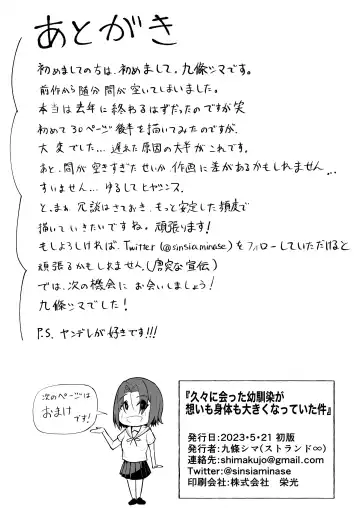 あとがき
初めましての方は、初めまして。九條シマです。
前作から随分間が空いてしまいました。
本当は去年に終わるはずだったのですが笑
初めて30ページ後半を描いてみたのですが、
大変でした…遅れた原因の大半がこれです。
あと、間が空きすぎたせいか作画に差があるかもしれません…
すいません…ゆるしてヒヤシンス
と、まぁ冗談はさておき、もっと安定した頻度で
描いていきたいですね。頑張ります!
もしよろしければ、Twitter(@sinsiaminase)をフォローしていただけると
頑張るかもしれません。(唐突な宣伝)
では、次の機会にお会いしましょう!
九條シマでした!
P.S. ヤンデレが好きです!!!
次のページは
おまけ
です!
『久々に会った幼馴染が
想いも身体も大きくなっていた件』
発行日:2023・5・21 初版
発行者:九條シマ(ストランド∞)
連絡先:shimakujo@gmail.com
Twitter:@sinsiaminase
印刷会社:株式会社 栄光